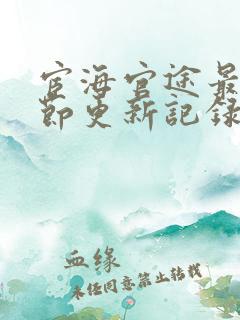 宦海官途最
節更新記録
血缘
未经同意禁止转载